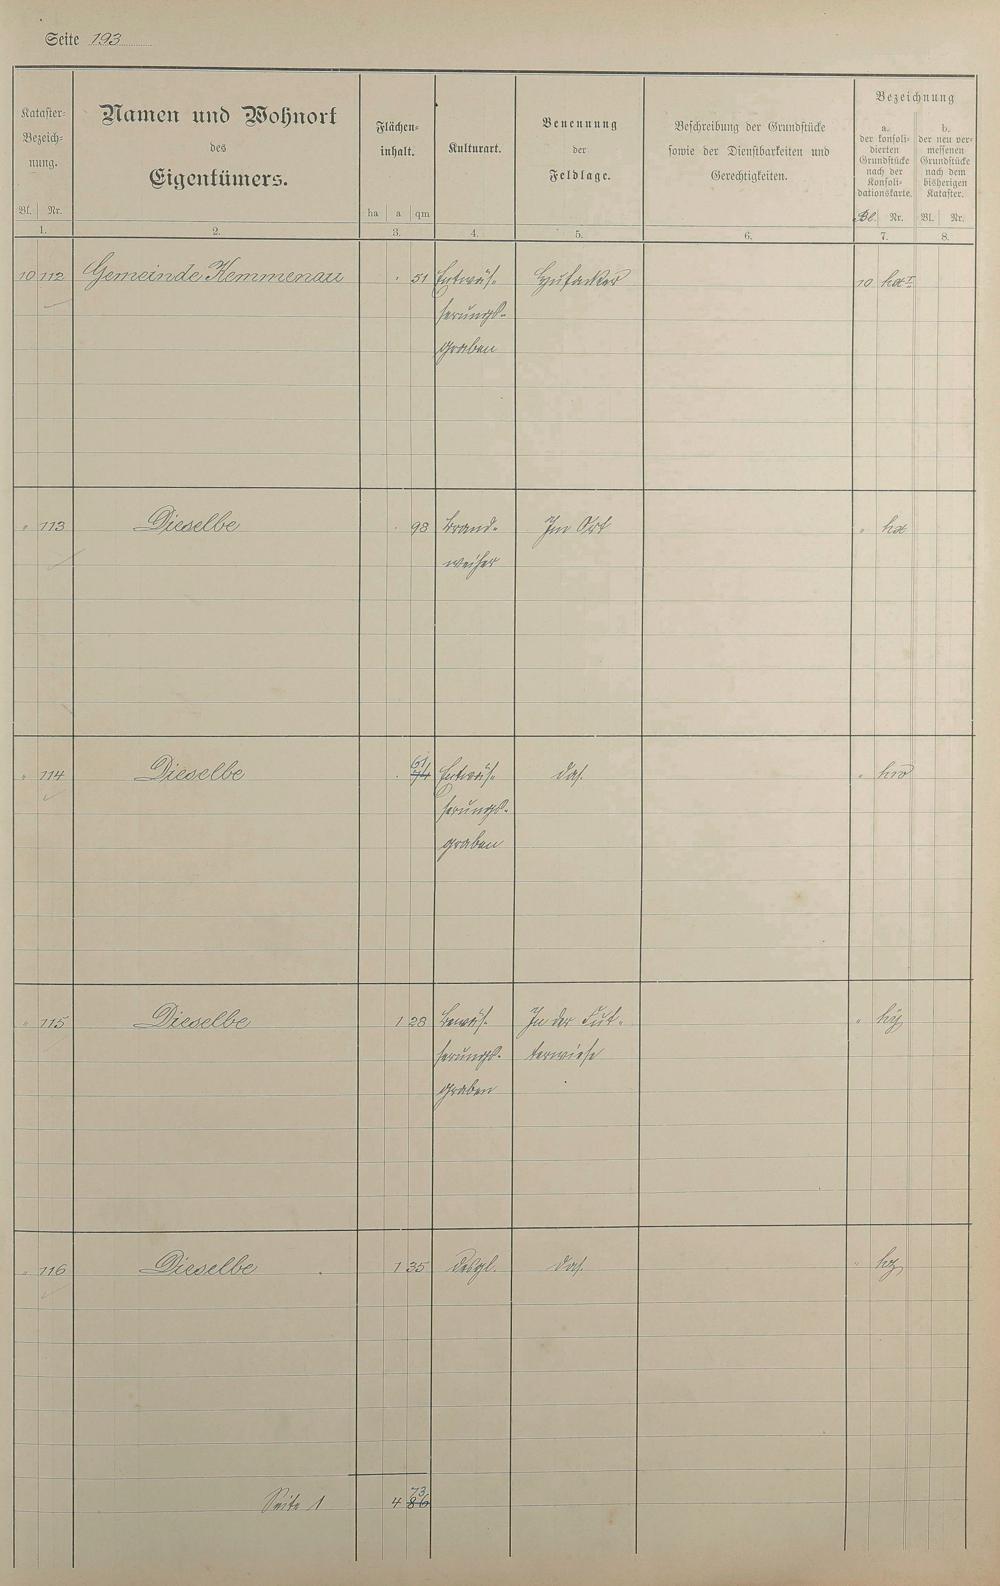 Seite 193
Kataster-
Bezeich-
nung.
Bl. Nr.
1.
Namen und Wohnort
des
Eigentümers.
2.
Flächen-
inhalt.
ha a qm
3.
Kulturart.
4.
Benennung
der
Feldlage.
5.
Beschreibung der Grundstücke
sowie der Dienstbarkeiten und
Gerechtigkeiten.
6.
Bezeichnung
a.
der konsoli-
dierten
Grundstücke
nach der
Konsoli-
dationskarte.
Bl. Nr.
7.
b.
der neu ver-
messenen
Grundstücke
nach dem
bisherigen
Kataster.
Bl. Nr.
8.
10 112 Gemeinde Kemmenau . 51 Entwäs- 10
serungs-
graben
" 113 Dieselbe . 98 Brand- Im Ort "
weiher
" 114 Dieselbe . 61 74 Entwäs- das. "
serungs-
graben
" 115 Dieselbe 1 28 Bewäs- In der Fut- "
serungs- terwiese
graben
" 116 Dieselbe 1 35 desgl. das. " hz
Seite 1 4 73 86